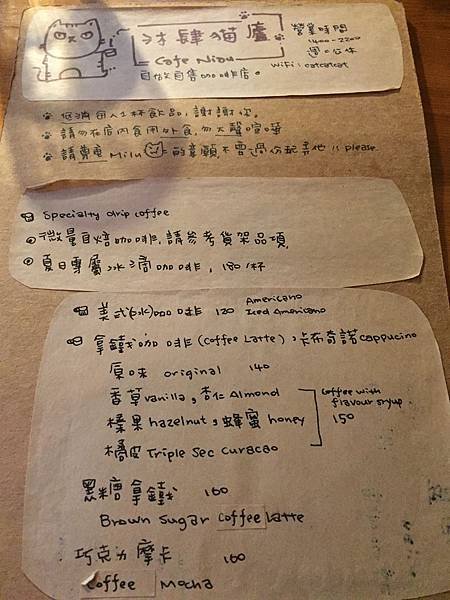 沐肆貓廬
Cafe Niau
自做自售咖啡店。
營業時間
1400-2200
週一公休
WiFi:catcatcat
低消每人1杯飲品,謝謝你。
請勿在店內食用外食,勿大聲喧嘩
請尊重Milu的意願,不要過份配弄他!! please
Specialty drip coffee
微量自焙咖啡,請參考貨架品項
夏日專屬冰滴咖啡,180/杯
美式(冰)咖啡 120 Americano
Iced Americano
拿鐵咖啡(Coffee Latte)、卡布奇諾cappucino
原味 original 140
香草vanilla,杏仁Almond
榛果hazelnut,蜂蜜honey
橘皮Triple Sec Curacao
Coffee with
flavour sryup
150
黑糖拿鐵 160
Brown Sugar Coffee Latte
巧克力摩卡 160
Coffee Mocha